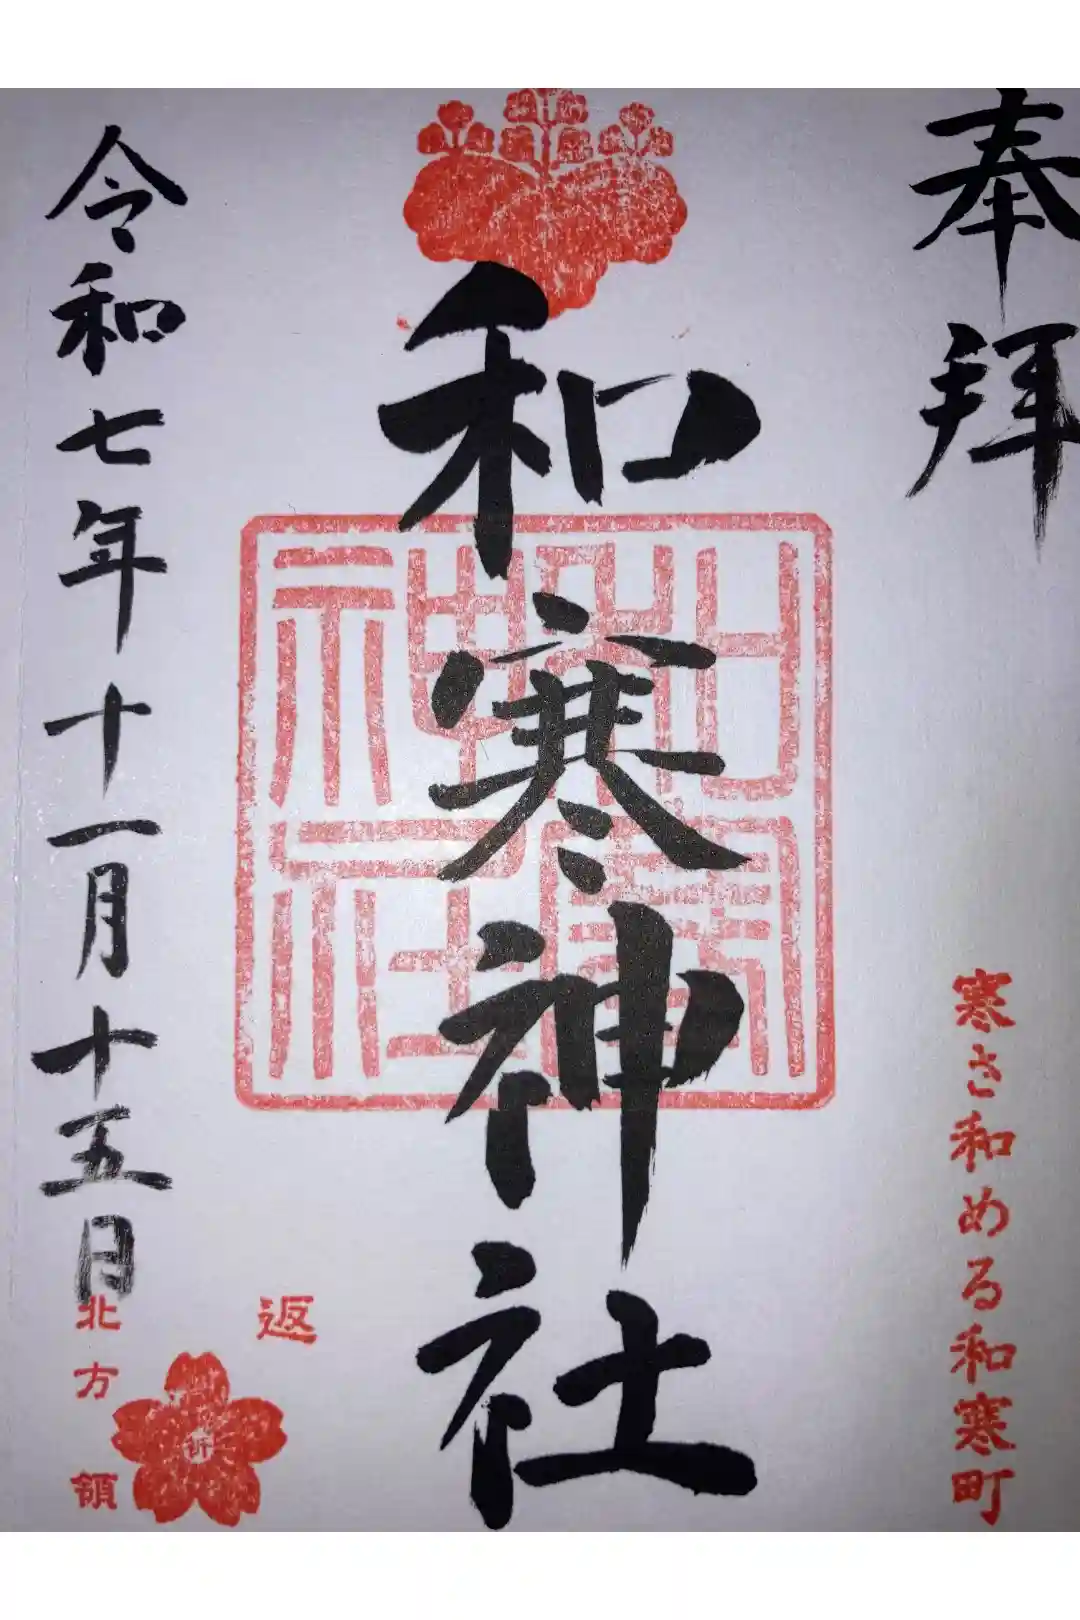 奉拝
寒さ和める和寒町
和寒神社
和寒
神社
返
祈
北方領
令和七年十一月十五日